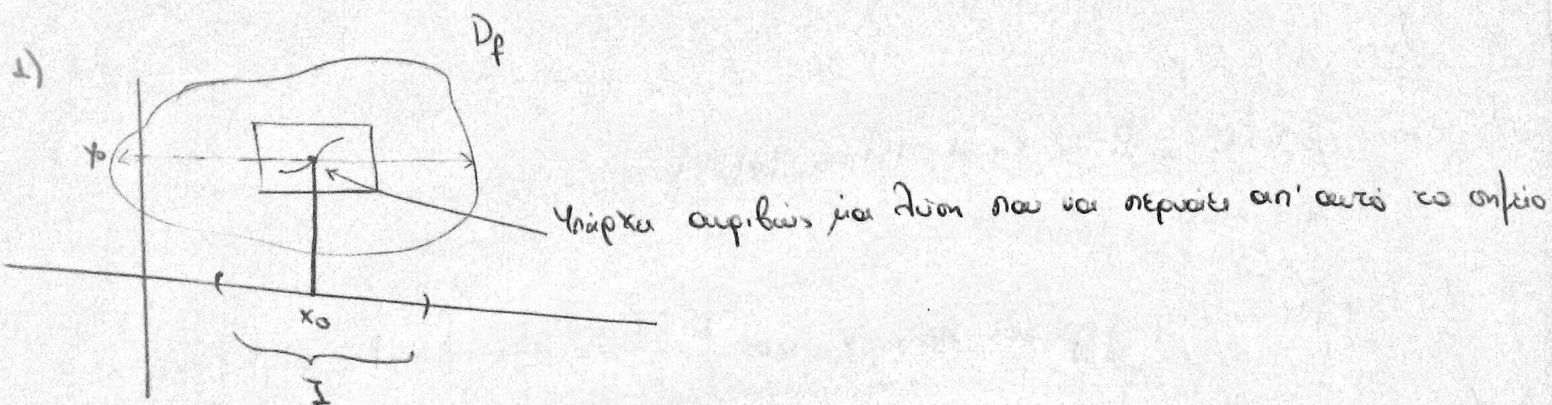 1)
D_f
y₀
Υπάρχει ακριβώς μια λύση που να περνάει απ' αυτό το σημείο
x₀
I